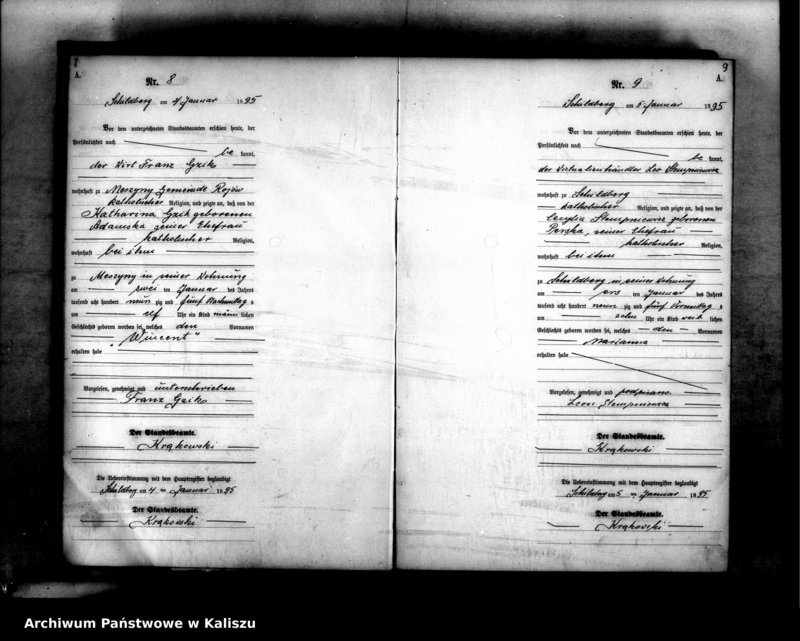 8
A.
Nr. 8
Schildberg am 4 Januar 1895
Vor dem unterzeichneten Standesbeamten erschien heute, der
Persönlichkeit nach
be kannt,
der Wirt Franz Gzik
wohnhaft zu Meszyny Gemeinde Rojów
katholischer Religion, und zeigte an, daß von der
Katharina Gzik geborenen
Adamska seiner Ehefrau
katholischer Religion,
wohnhaft bei ihm
zu Meszyny in seiner Wohnung
am zwei ten Januar des Jahres
tausend acht hundert neun zig und fünf Nachmittag s
um elf Uhr ein Kind männ lichen
Geschlechts geboren worden sei, welches den Vornamen
„Wincent"
erhalten habe
Vorgelesen, genehmigt und unterschrieben
Franz Gzik
Der Standesbeamte.
Krąkowski
Die Uebereinstimmung mit dem Hauptregister beglaubigt
Schildberg am 4 ten Januar 1895
Der Standesbeamte.
Krąkowski
9
A.
Nr. 9
Schildberg am 5 Januar 1895
Vor dem unterzeichneten Standesbeamten erschien heute, der
Persönlichkeit nach
be kannt,
der Victualienhändler Leo Stempniewicz
wohnhaft zu Schildberg
katholischer Religion, und zeigte an, daß von der
Cecylia Stempniewicz geborenen
seiner Ehefrau
katholischer Religion,
wohnhaft bei ihm
zu Schildberg in seiner Wohnung
am ers ten Januar des Jahres
tausend acht hundert neun zig und fünf Vormittag s
um zehn Uhr ein Kind weib lichen
Geschlechts geboren worden sei, welches den Vornamen
Marianna
erhalten habe
Vorgelesen, genehmigt und
Leon Stempniewicz
Der Standesbeamte.
Krąkowski
Die Uebereinstimmung mit dem Hauptregister beglaubigt
Schildberg am 5 ten Januar 1895
Der Standesbeamte.
Krąkowski
Archiwum Państwowe w Kaliszu